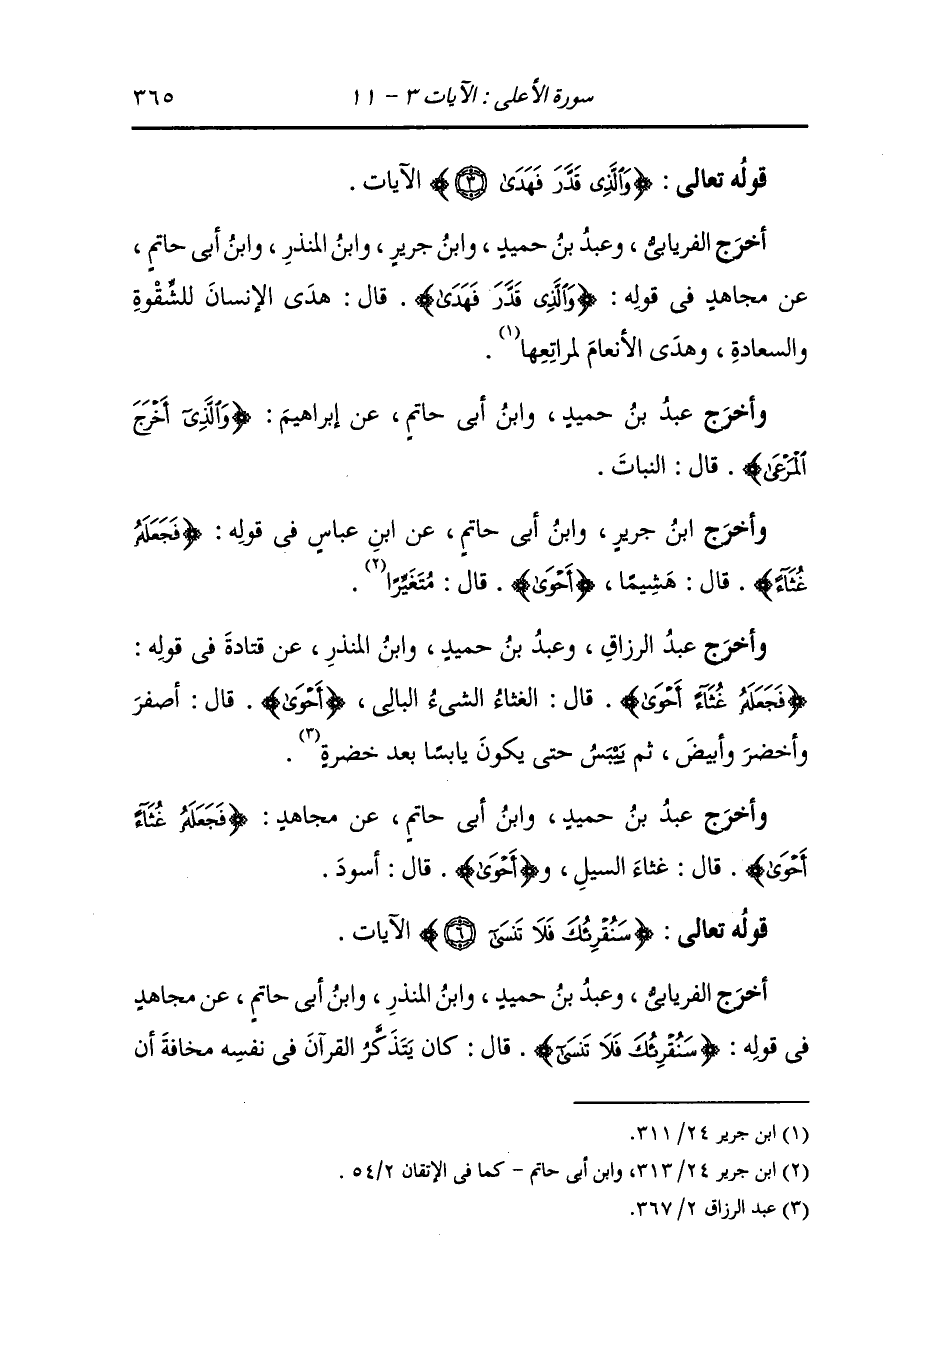 سورة الأعلى : الآيات ٣ - ١١ ٣٦٥
قولُه تعالى : ﴿وَٱلَّذِى قَدَّرَ فَهَدَىٰ ٣﴾ الآيات .
أخرَج الفريابىُّ ، وعبدُ بنُ حميدٍ ، وابنُ جريرٍ ، وابنُ المنذرِ ، وابنُ أبى حاتمٍ ،
عن مجاهدٍ فى قولِه : ﴿وَٱلَّذِى قَدَّرَ فَهَدَىٰ﴾ . قال : هدَى الإنسانَ للشِّقْوةِ
والسعادةِ ، وهدَى الأنعامَ لمراتِعِها(١) .
وأخرَج عبدُ بنُ حميدٍ ، وابنُ أبى حاتمٍ ، عن إبراهيمَ : ﴿وَٱلَّذِىٓ أَخْرَجَ
ٱلْمَرْعَىٰ﴾ . قال : النباتَ .
وأخرَج ابنُ جريرٍ ، وابنُ أبى حاتمٍ ، عن ابنِ عباسٍ فى قولِه : ﴿فَجَعَلَهُۥ
غُثَآءً﴾ . قال : هَشِيمًا ، ﴿أَحْوَىٰ﴾ . قال : مُتَغَيِّرًا(٢) .
وأخرَج عبدُ الرزاقِ ، وعبدُ بنُ حميدٍ ، وابنُ المنذرِ ، عن قتادةَ فى قولِه :
﴿فَجَعَلَهُۥ غُثَآءً أَحْوَىٰ﴾ . قال : الغثاءُ الشىءُ البالِى ، ﴿أَحْوَىٰ﴾ . قال : أصفرَ
وأخضرَ وأبيضَ ، ثم يَيْبَسُ حتى يكونَ يابسًا بعد خضرةٍ(٣) .
وأخرَج عبدُ بنُ حميدٍ ، وابنُ أبى حاتمٍ ، عن مجاهدٍ : ﴿فَجَعَلَهُۥ غُثَآءً
أَحْوَىٰ﴾ . قال : غثاءَ السيلِ ، و﴿أَحْوَىٰ﴾ . قال : أسودَ .
قولُه تعالى : ﴿سَنُقْرِئُكَ فَلَا تَنسَىٰٓ ٦﴾ الآيات .
أخرَج الفريابىُّ ، وعبدُ بنُ حميدٍ ، وابنُ المنذرِ ، وابنُ أبى حاتمٍ ، عن مجاهدٍ
فى قولِه : ﴿سَنُقْرِئُكَ فَلَا تَنسَىٰٓ﴾ . قال : كان يَتَذَكَّرُ القرآنَ فى نفسِه مخافةَ أن
(١) ابن جرير ٢٤/ ٣١١.
(٢) ابن جرير ٢٤/ ٣١٣، وابن أبى حاتم - كما فى الإتقان ٢/ ٥٤ .
(٣) عبد الرزاق ٢/ ٣٦٧.